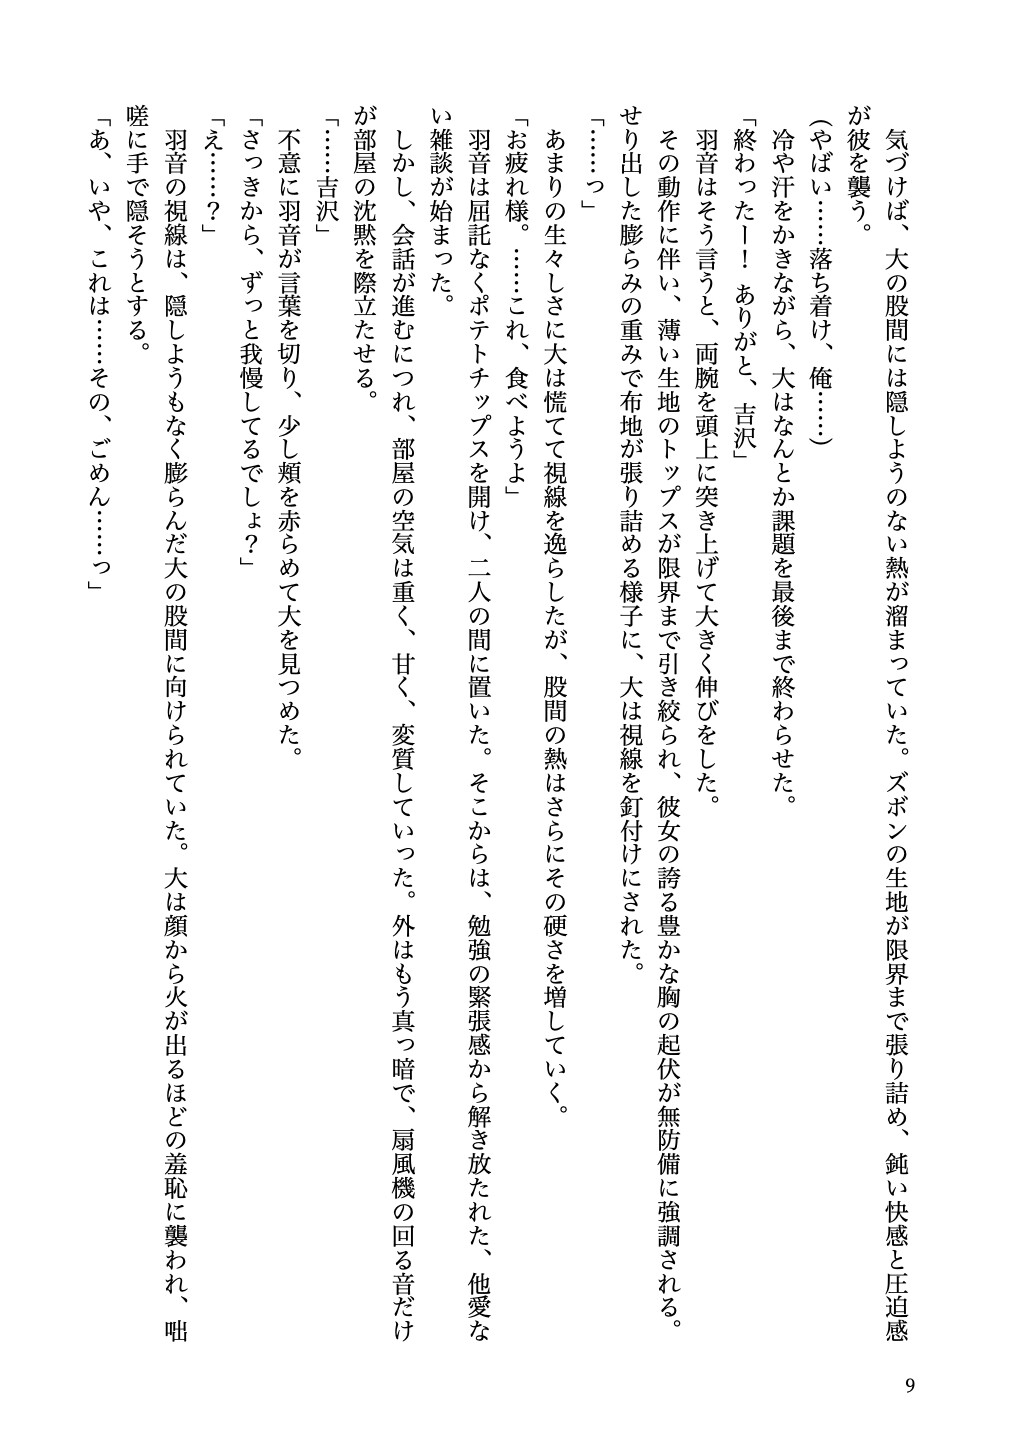 気づけば、大の股間には隠しようのない熱が溜まっていた。ズボンの生地が限界まで張り詰め、鈍い快感と圧迫感
が彼を襲う。
(やばい……落ち着け、俺……)
冷や汗をかきながら、大はなんとか課題を最後まで終わらせた。
「終わったー! ありがと、吉沢」
羽音はそう言うと、両腕を頭上に突き上げて大きく伸びをした。
その動作に伴い、薄い生地のトップスが限界まで引き絞られ、彼女の誇る豊かな胸の起伏が無防備に強調される。
せり出した膨らみの重みで布地が張り詰める様子に、大は視線を釘付けにされた。
「……っ」
あまりの生々しさに大は慌てて視線を逸らしたが、股間の熱はさらにその硬さを増していく。
「お疲れ様。……これ、食べようよ」
羽音は屈託なくポテトチップスを開け、二人の間に置いた。そこからは、勉強の緊張感から解き放たれた、他愛な
い雑談が始まった。
しかし、会話が進むにつれ、部屋の空気は重く、甘く、変質していった。外はもう真っ暗で、扇風機の回る音だけ
が部屋の沈黙を際立たせる。
「……吉沢」
不意に羽音が言葉を切り、少し頬を赤らめて大を見つめた。
「さっきから、ずっと我慢してるでしょ?」
「え……?」
羽音の視線は、隠しようもなく膨らんだ大の股間に向けられていた。大は顔から火が出るほどの羞恥に襲われ、咄
嗟に手で隠そうとする。
「あ、いや、これは……その、ごめん……っ」
9